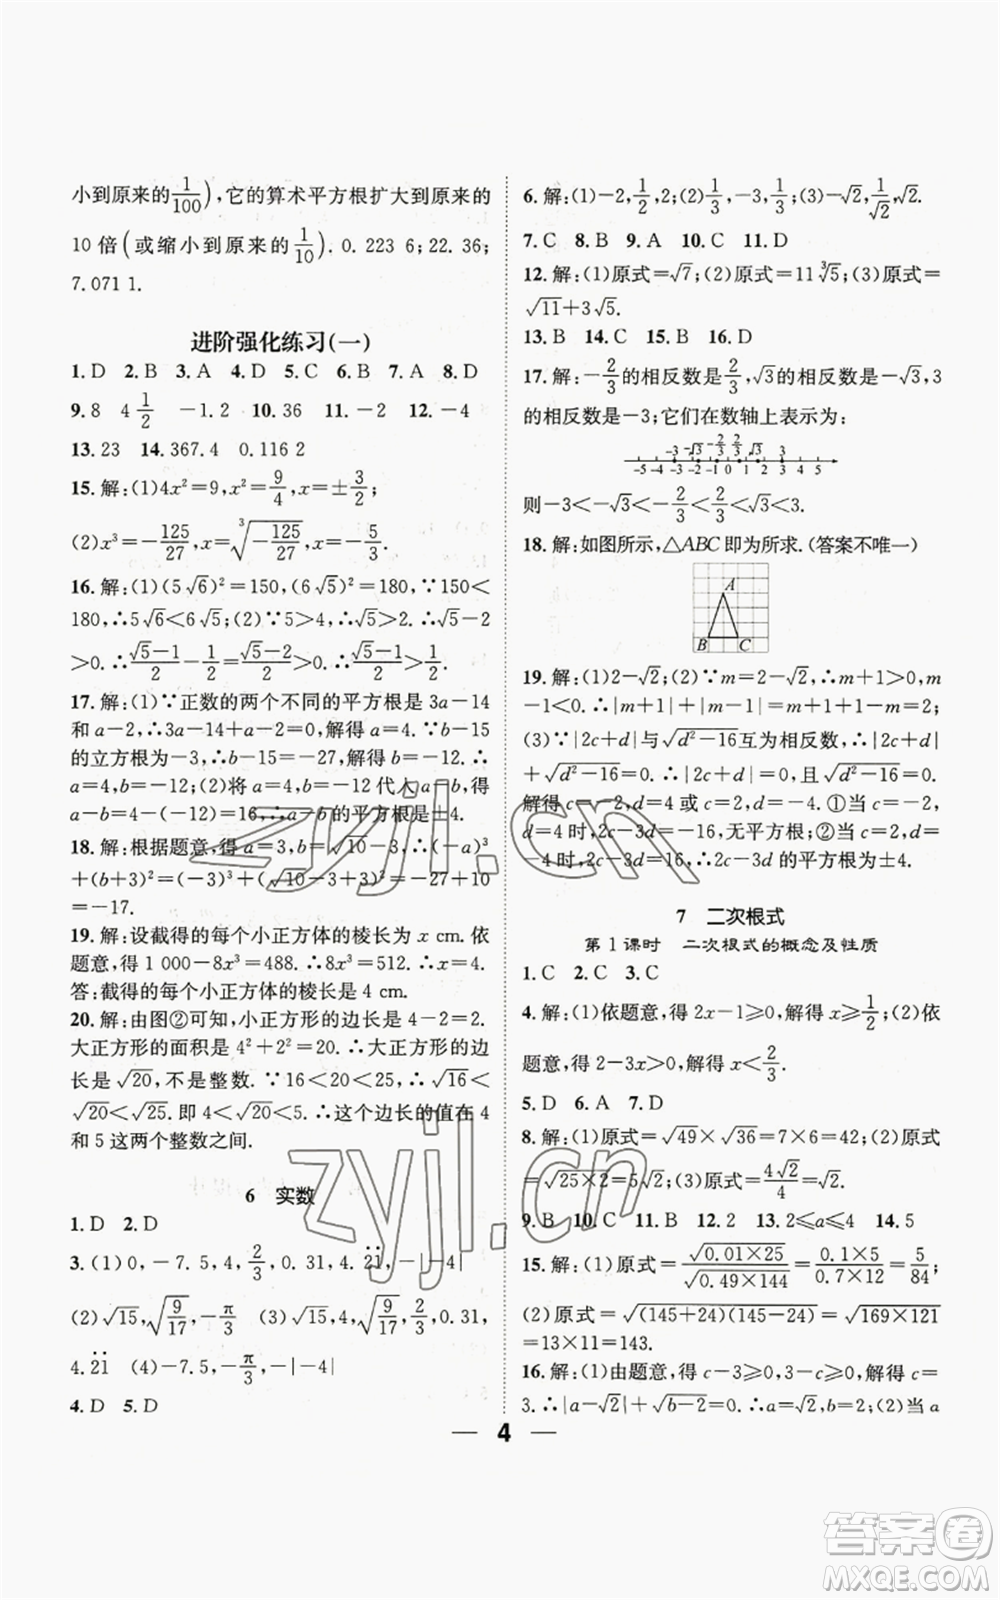 小到原来的1/100),它的算术平方根扩大到原来的
10 倍(或缩小到原来的1/10). 0. 223 6; 22. 36;
7. 071 1.
进阶强化练习(一)
1. D 2. B 3. A 4. D 5. C 6. B 7. A 8. D
9. 8 4 1/2 －1. 2 10. 36 11. －2 12. －4
13. 23 14. 367. 4 0. 116 2
15. 解:(1)4x²＝9,x²＝9/4,x＝±3/2;
(2)x³＝－125/27,x＝∛(－125/27),x＝－5/3.
16. 解:(1)(5√6)²＝150,(6√5)²＝180,∵150＜
180,∴5√6＜6√5;(2)∵5＞4,∴√5＞2,∴√5－2
＞0.∴(√5－1)/2－1/2＝(√5－2)/2＞0.∴(√5－1)/2＞1/2.
17. 解:(1)∵正数的两个不同的平方根是 3a－14
和 a－2,∴3a－14＋a－2＝0,解得 a＝4,∵b－15
的立方根为－3,∴b－15＝－27,解得 b＝－12.
∴a＝4,b＝－12;(2)将 a＝4,b＝－12 代入 a－b,得
a－b＝4－(－12)＝16,∴a－b 的平方根是±4.
18. 解:根据题意,得 a＝3,b＝√10－3,∴(－a)³
＋(b＋3)²＝(－3)³＋(√10－3＋3)²＝－27＋10
＝－17.
19. 解:设截得的每个小正方体的棱长为 x cm. 依
题意,得 1 000－8x³＝488.∴8x³＝512.∴x＝4.
答:截得的每个小正方体的棱长是 4 cm.
20. 解:由图②可知,小正方形的边长是 4－2＝2.
大正方形的面积是 4²＋2²＝20.∴大正方形的边
长是√20,不是整数.∵16＜20＜25,∴√16＜
√20＜√25. 即 4＜√20＜5.∴这个边长的值在 4
和 5 这两个整数之间.
6 实数
1. D 2. D
3. (1)0,－7. 5,2/3,0. 31,4. 2̇1̇,－|－4|
(2)√15,√(9/17),－π/3 (3)√15,√(9/17),2/3,0. 31,
4. 2̇1̇ (4)－7. 5,－π/3,－|－4|
4. D 5. D
6. 解:(1)－2,1/2,2;(2)1/3,－3,1/3;(3)－√2,1/√2,√2.
7. C 8. B 9. A 10. C 11. D
12. 解:(1)原式＝√7;(2)原式＝11∛5;(3)原式＝
√11＋3√5.
13. B 14. C 15. B 16. D
17. 解:－2/3的相反数是2/3,√3的相反数是－√3,3
的相反数是－3;它们在数轴上表示为:
－3 －√3 －2/3 2/3 √3 3
－5 －4 －3 －2 －1 0 1 2 3 4 5
则－3＜－√3＜－2/3＜2/3＜√3＜3.
18. 解:如图所示,△ABC 即为所求.(答案不唯一)
A
B C
19. 解:(1)2－√2;(2)∵m＝2－√2,∴m＋1＞0,m
－1＜0.∴|m＋1|＋|m－1|＝m＋1＋1－m＝2;
(3)∵|2c＋d|与√(d²－16)互为相反数,∴|2c＋d|
＋√(d²－16)＝0.∴|2c＋d|＝0,且√(d²－16)＝0.
解得 c＝－2,d＝4 或 c＝2,d＝－4. ①当 c＝－2,
d＝4 时,2c－3d＝－16,无平方根;②当 c＝2,d＝
－4 时,2c－3d＝16,∴2c－3d 的平方根为±4.
7 二次根式
第 1 课时 二次根式的概念及性质
1. C 2. C 3. C
4. 解:(1)依题意,得 2x－1≥0,解得 x≥1/2;(2)依
题意,得 2－3x＞0,解得 x＜2/3.
5. D 6. A 7. D
8. 解:(1)原式＝√49×√36＝7×6＝42;(2)原式
＝√(25×2)＝5√2;(3)原式＝4√2/4＝√2.
9. B 10. C 11. B 12. 2 13. 2≤a≤4 14. 5
15. 解:(1)原式＝√(0. 01×25)/√(0. 49×144)＝(0. 1×5)/(0. 7×12)＝5/84;
(2)原式＝√((145＋24)(145－24))＝√(169×121)
＝13×11＝143.
16. 解:(1)由题意,得 c－3≥0,3－c≥0,解得 c＝
3.∴|a－√5|＋√(b－2)＝0.∴a＝√5,b＝2;(2)当 a
— 4 —
zyjl.cn
zyjl.cn
答案卷
MXQE.COM